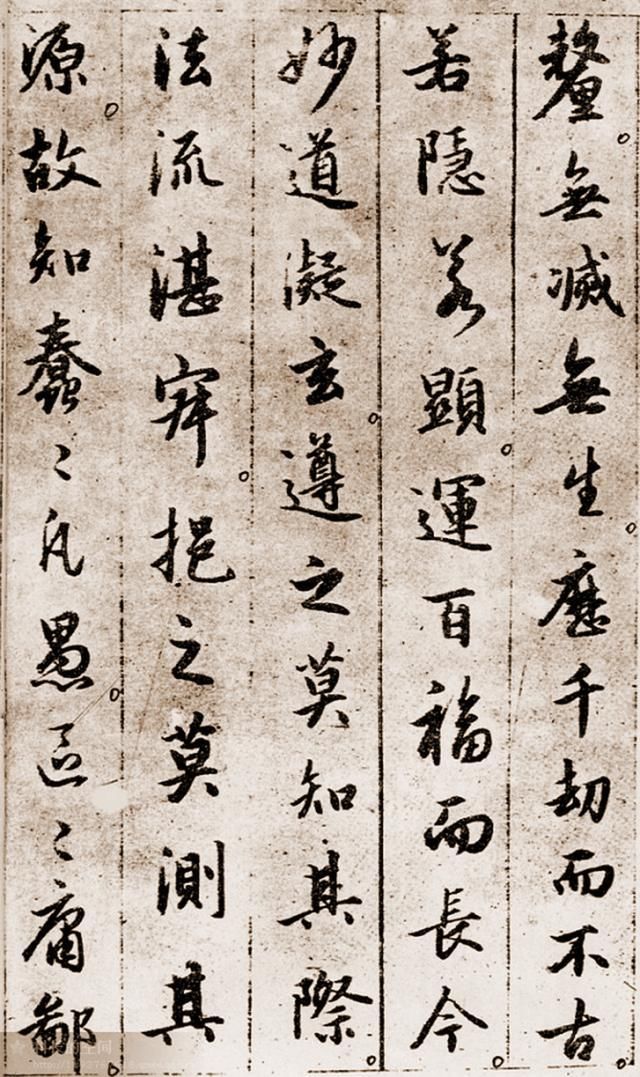 釐無滅無生歷千劫而不古
若隱若顯運百福而長今
妙道凝玄遵之莫知其際
法流湛寂挹之莫測其
源故知蠢〻凡愚區〻庸鄙